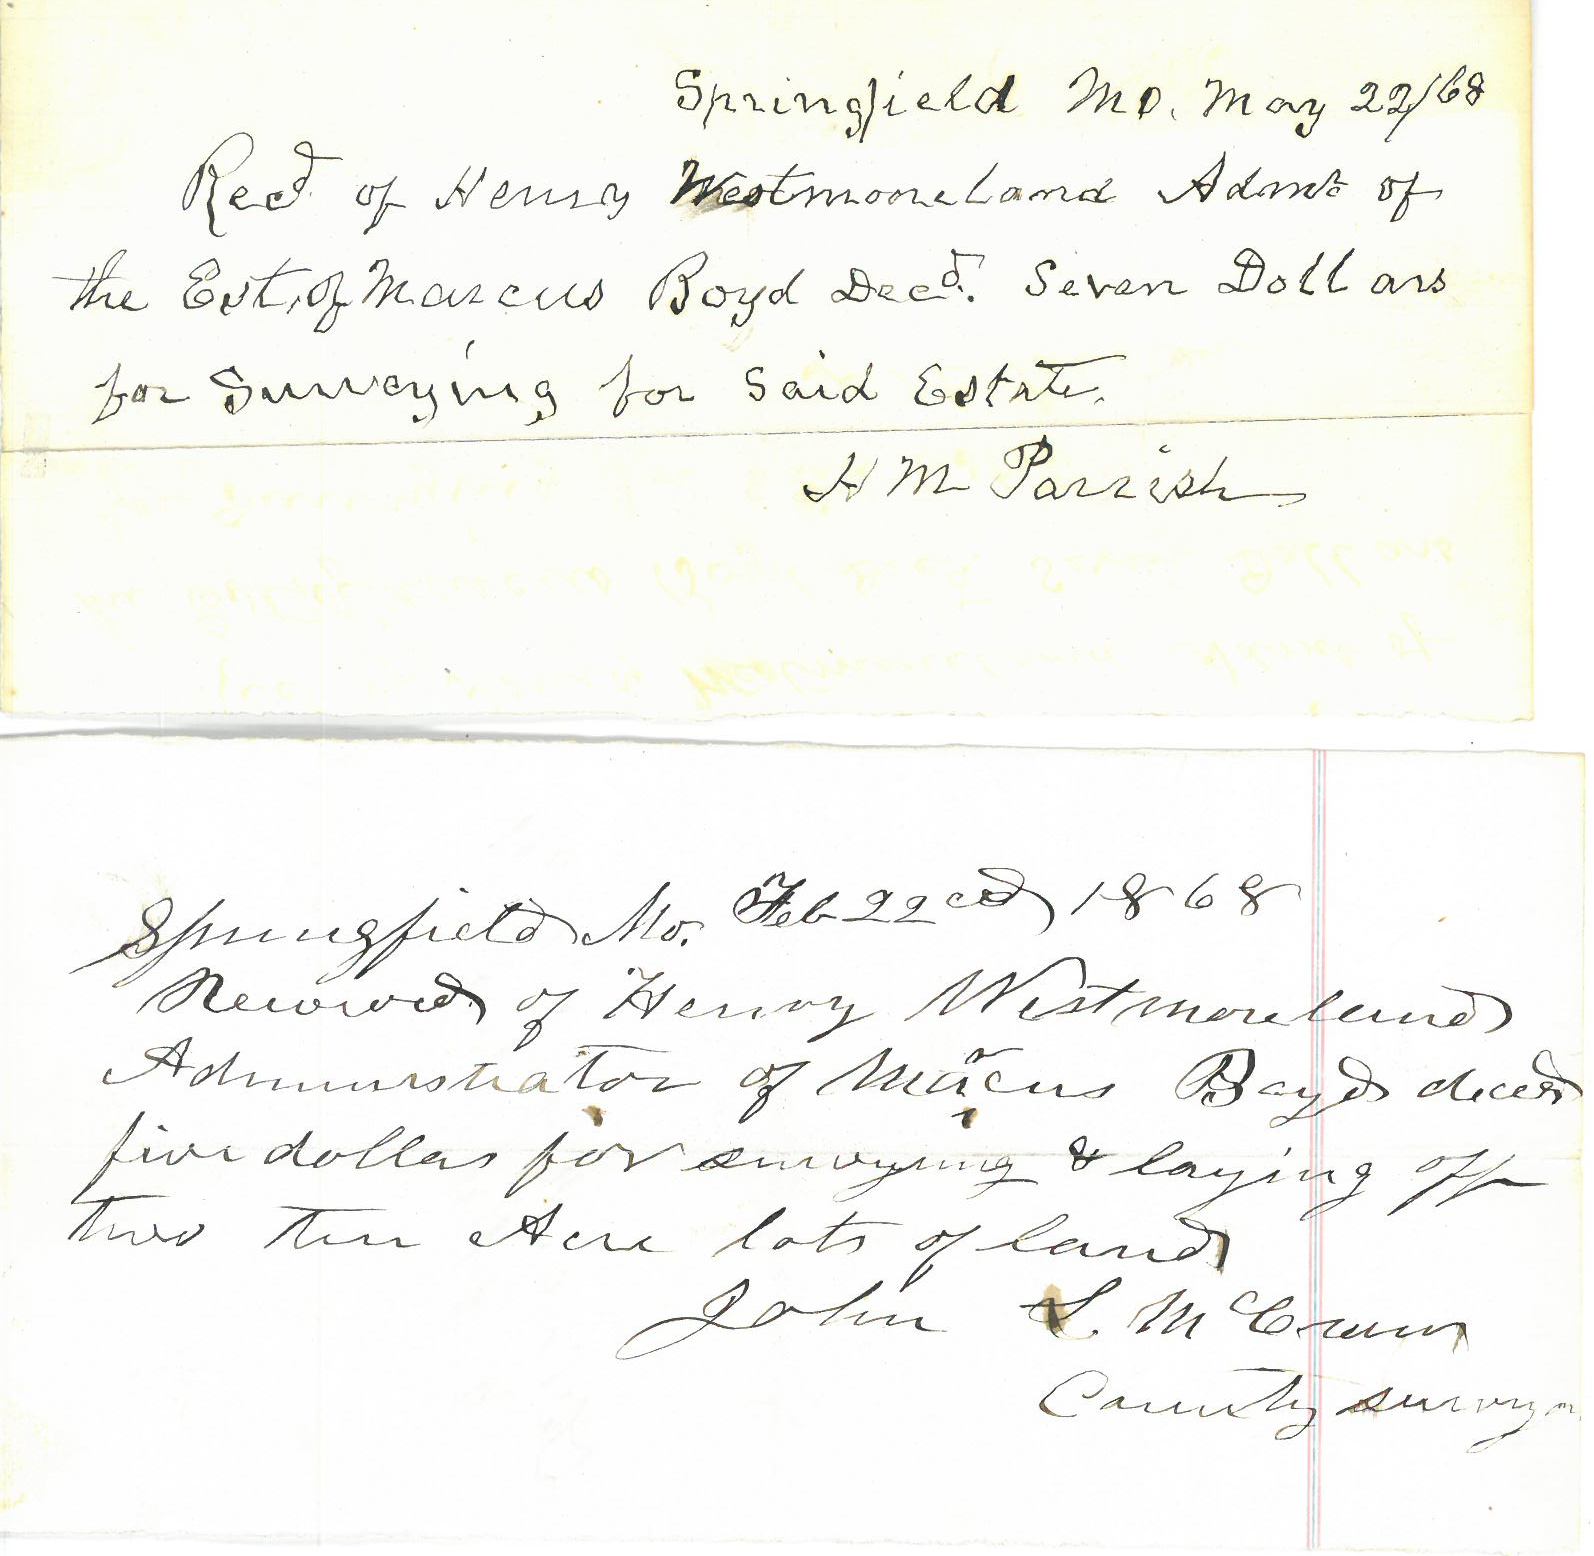 Springfield Mo. May 22/68
Recd. of Henry Westmoreland Admr of
the Est. of Marcus Boyd Decd. Seven Dollars
for Surveying for Said Estate.
H M Parrish
Springfield Mo. Feb 22cd 1868
Received of Henry Westmoreland
Administrator of Marcus Boyd deced
five dollars for surveying & laying off
two ten Acre lots of land
John L McCraw
County surveyor